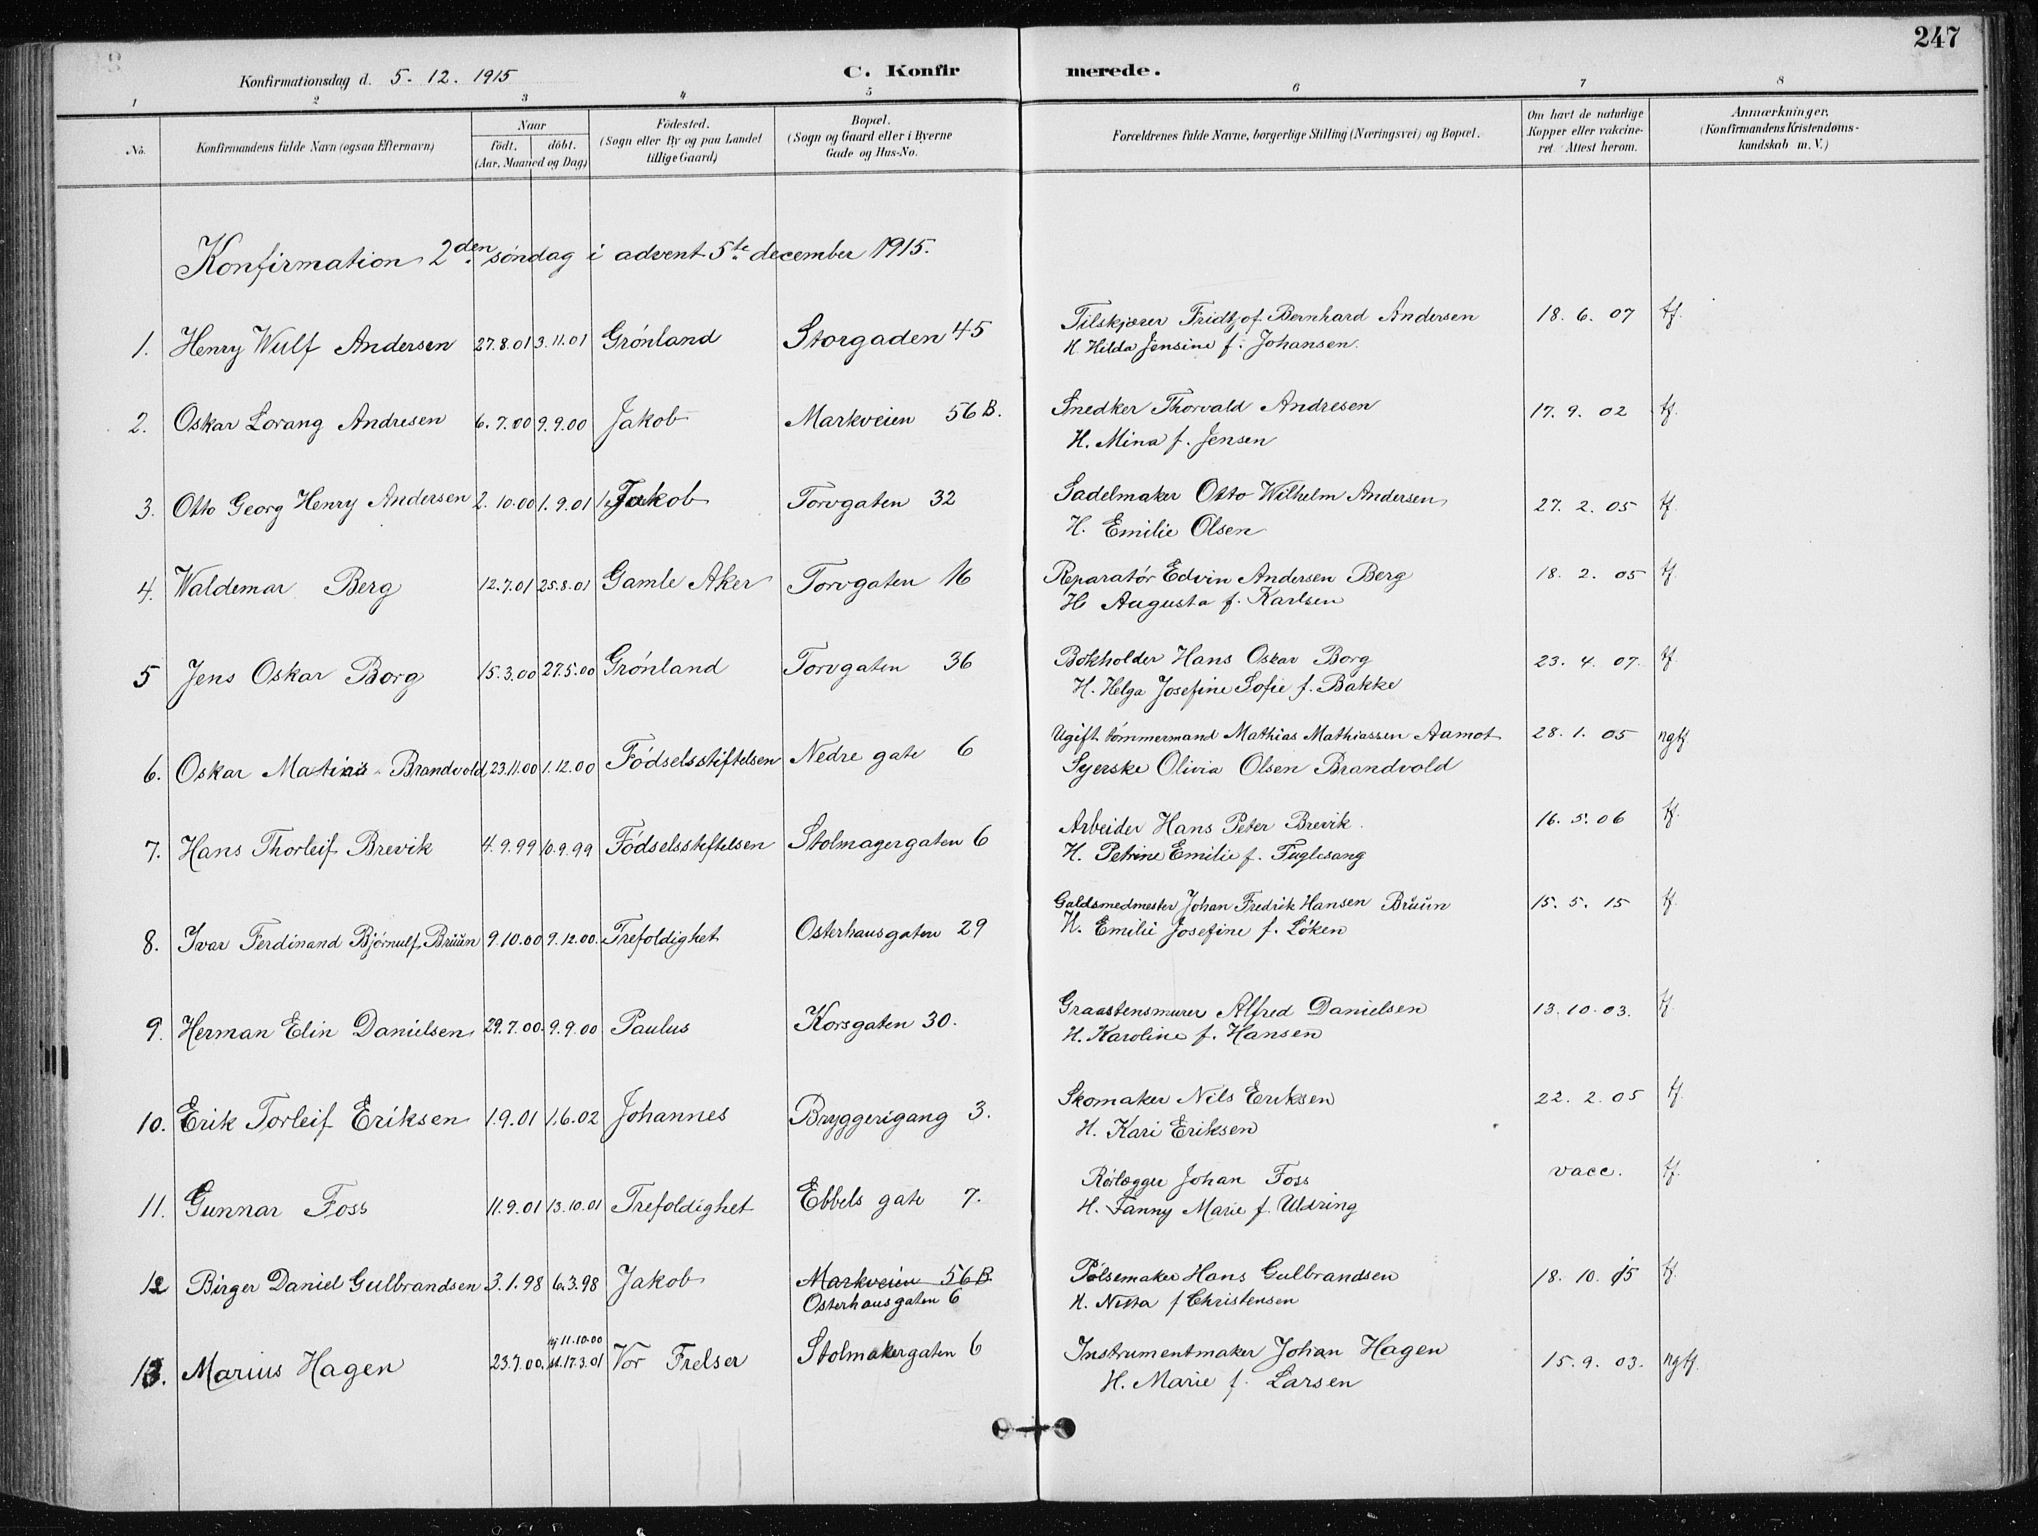 247
Konfirmationsdag d. 5. 12. 1915
C. Konfir merede.
1 2 3 4 5 6 7 8
No.
Konfirmandens fulde Navn (ogsaa Efternavn)
Naar
födt. döbt.
(Aar, Maaned og Dag)
Födested.
(Sogn eller By og paa Landet
tillige Gaard)
Bopæl.
(Sogn og Gaard eller i Byerne
Gade og Hus-No.
Forældrenes fulde Navne, borgerlige Stilling (Næringsvei) og Bopæl.
Om havt de naturlige
Kopper eller vakcine-
ret. Attest herom.
Anmærkninger.
(Konfirmandens Kristendoms-
kundskab m. V.)
Konfirmation 2den søndag i advent 5te december 1915.
1. Henry Wulf Andersen 27.8.01 3.11.01 Grønland Storgaden 45 Tilskjærer Fridtjof Bernhard Andersen 18. 6. 07 tf.
H. Hilda Jensine f. Johansen.
2. Oskar Lorang Andresen 6.7.00 9.9.00 Jakob Markveien 56 B. Snedker Thorvald Andresen 17. 9. 02 tf.
H. Mina f. Jensen
3. Otto Georg Henry Andersen 2.10.00 1.9.01 Jakob Torvgaten 32 Sadelmaker Otto Wilhelm Andersen 27. 2. 05 tf.
H. Emilie Olsen
4. Waldemar Berg 12.7.01 25.8.01 Gamle Aker Torvgaten 16 Reparatør Edvin Andersen Berg 18. 2. 05 tf.
H. Augusta f. Karlsen
5 Jens Oskar Borg 15.3.00 27.5.00 Grønland Torvgaten 36 Bokholder Hans Oskar Borg 23. 4. 07. tf.
H. Helga Josefine Sofie f. Bakke
6. Oskar Matias Brandvold 23.11.00 1.12.00 Fødselsstiftelsen Nedre gate 6 Ugift tømmermand Mathias Mathiassen Aamot 28. 1. 05 ngtf
Syerske Olivia Olsen Brandvold
7. Hans Thorleif Brevik 4.9.99 10.9.99 Fødselsstiftelsen Stolmagergaten 6 Arbeider Hans Peter Brevik. 16. 5. 06 tf.
H. Petrine Emilie f. Fuglesang
8. Ivar Ferdinand Bjørnulf Bruun 9.10.00 9.12.00. Trefoldighet Osterhausgaten 29 Guldsmedmester Johan Fredrik Hansen Bruun 15. 5. 15 tf.
H. Emilie Josefine f. Løken
9. Herman Elin Danielsen 29.7.00. 9.9.00 Paulus Korsgaten 30. Graastensmurer Alfred Danielsen 13. 10. 03. tf.
H. Karoline f. Hansen
10. Erik Torleif Eriksen 1.9.01 1.6.02 Johannes Bryggerigang 3. Skomaker Nils Eriksen 22. 2. 05 tf.
H. Kari Eriksen
11. Gunnar Foss 11.9.01 13.10.01 Trefoldighet Ebbels gate 7. Rørlægger Johan Foss vacc. tf.
H. Fanny Marie f. Uldring
12 Birger Daniel Gulbrandsen 3.1.98 6.3.98 Jakob Markveien 56 B. Pølsemaker Hans Gulbrandsen 18. 10. 15 tf.
Osterhausgaten 6 H. Netta f Christensen
13. Marius Hagen 23.7.00. hj 11.10.00 st. 17.3.01 Vor Frelser Stolmakergaten 6 Instrumentmaker Johan Hagen 15. 9. 03. ngtf.
H. Marie f. Larsen